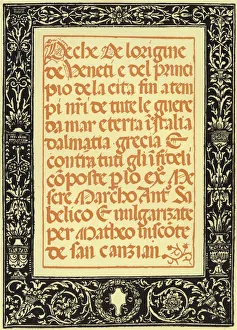 Deche De lorigine
de Veneti e del princi
pio de la cita fin a tem
pi nr̃i de tute le guere
da mar e terra ĩ Italia
dalmatia grecia E
contra tuti gli ĩfideli
cõposte p̱ lo ex̃ Me
sere Marcho Ant. Sa
belico E uulgarizate
per Matheo uiscõte
de san canzian